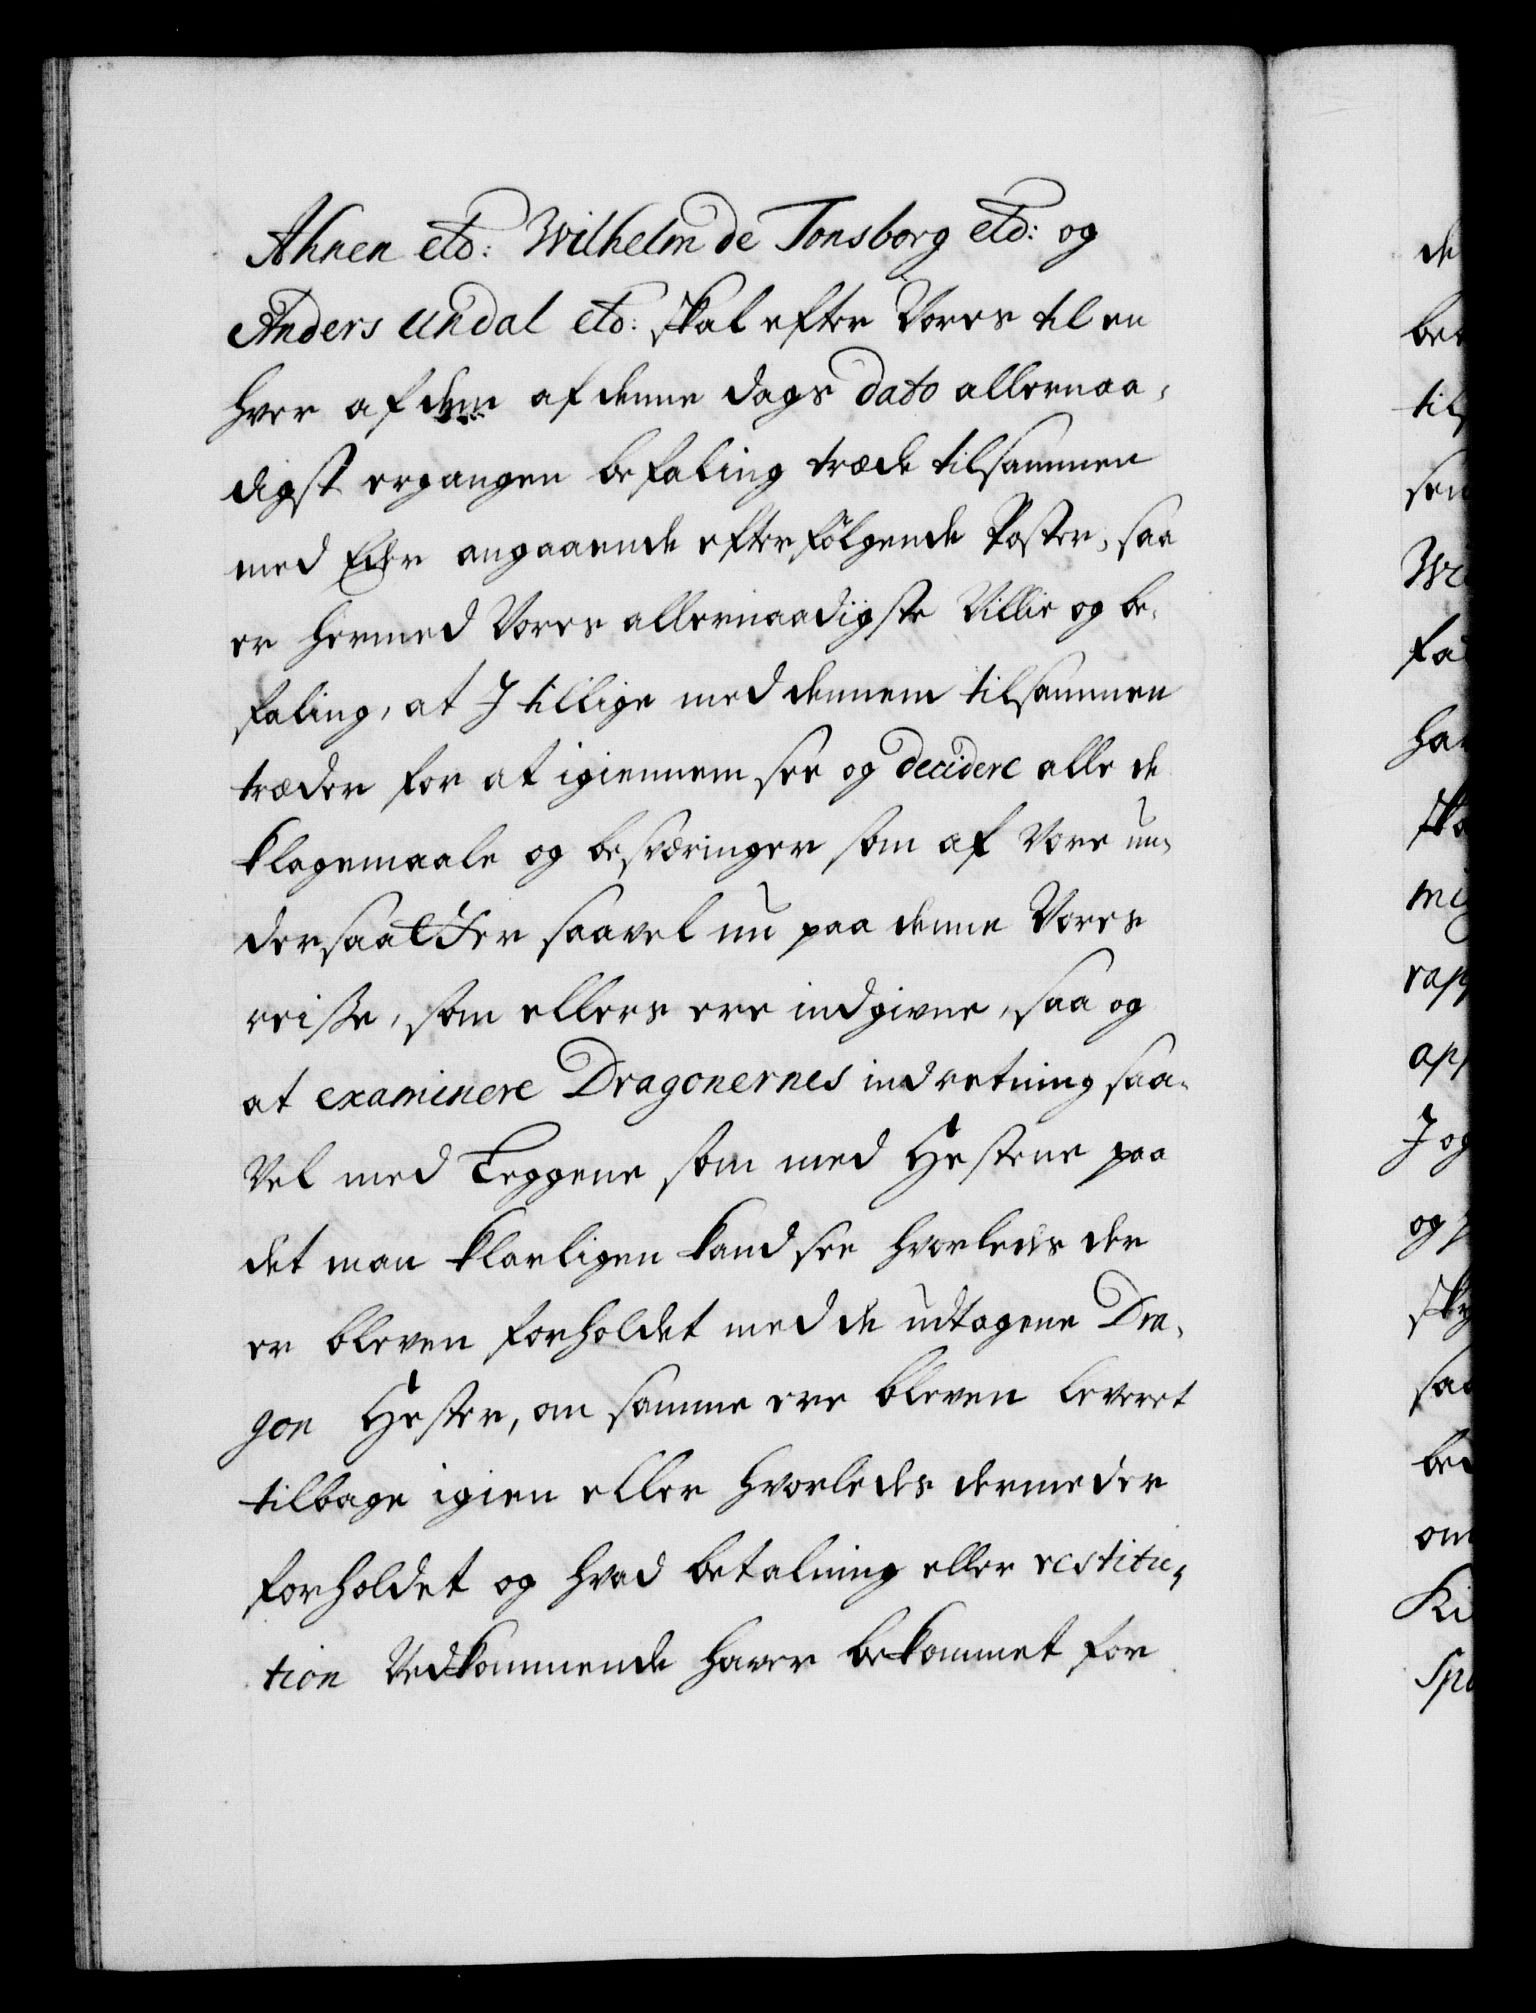 Ahnen etc: Wilhelm de Tonsborg etc: og
Anders Undal etc: skal efter Vores til en
hver af dem af denne dags dato allernaa-
digst ergangen befaling træde tilsammen
med Eder angaaende efterfølgende Poster, saa
er hermed Vores allernaadigste Villie og be-
faling, at I tillige med dennem tilsammen
træder for at igiennem see og decidere alle de
klagemaale og besværinger som af Vore un-
dersaatter saavel nu paa denne Vores
reisse, som ellers ere indgivne, saa og
at examinere Dragonernes indretning saa-
vel med Leggene som med Hestene paa
det man klarligen kand see hvorledes der
er bleven forholdet med de udtagene Dra-
gon Hester, om samme ere bleven leveret
tilbage igien eller hvorledes dermed er
forholdet og hvad betalning eller restitu-
tion Vedkommende haver bekommet for